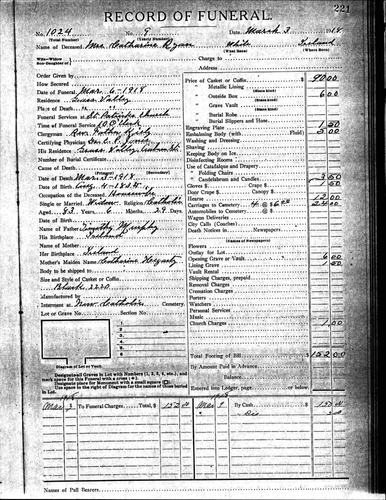 221
RECORD OF FUNERAL.
No. 1024 9 Date, March 3 1918
(Total Number) (Yearly Number)
Name of Deceased Mrs Catharine Ryan White Ireland
(What Race) (Where Born)
Wife—Widow
Son—Daughter of
Charge to
Address
Order Given by
How Secured
Date of Funeral Mar 6-1918
Residence Grass Valley
Place of Death
Funeral Services at St. Patricks Church
Time of Funeral Service
Clergyman Rev. Father
Certifying Physician
His Residence Grass Valley
Number of Burial Certificate
Cause of Death
Date of Death Mar 3-1918
Date of Birth Aug 4-1834
Occupation of the Deceased Housewife
Single or Married Widow Religion Catholic
Aged 83 Years 6 Months 29 Days
Name of Father Timothy Murphy
His Birthplace Ireland
Name of Mother
Her Birthplace Ireland
Mother's Maiden Name Catharine
Body to be shipped to
Size and Style of Casket or Coffin
Black 2220
Manufactured by
Interment at New Catholic Cemetery.
Lot or Grave No.
1
2
3
4
5
6
Diagram of Lot or Vault
Designate all Graves in Lot with Numbers (1, 2, 3, 4, etc.), and
mark space for this Funeral with a cross (+)
Designate place for Monument with a small square (□)
Use space on the right of Diagram for names of those buried
in Lot.
Price of Casket or Coffin $ 90.00
(State kind)
Metallic Lining
Outside Box 6.00
(State kind)
Grave Vault
(State kind)
Burial Robe
(State kind)
Burial Slippers and Hose
Engraving Plate 1.50
Embalming Body (with Fluid) 5.00
Washing and Dressing
Shaving
Keeping Body on Ice
Disinfecting Rooms
Use of Catafalque and Drapery
Folding Chairs
Candelabrum and Candles 3.50
Gloves $ Crape $ 1.50
Door Crape $ Canopy $
Hearse 12.00
Carriages to Cemetery 4 @ $6.00 24.00
Automobiles to Cemetery @ $
Wagon Deliveries
City Calls (Coaches)
Death Notices in Newspapers
(Names of Newspapers)
Flowers
Outlay for Lot
Opening Grave or Vault 6.00
Lining Grave 1.50
Vault Rental
Shipping Charges, prepaid
Removal Charges
Cremation Charges
Porters
Watchers
Personal Services
Music
Church Charges 1.00
Total Footing of Bill $ 152.00
By Amount Paid in Advance
Balance
Entered into Ledger, page or below.
1918 1918
Mar 3 To Funeral Charges, Total, $ Mar 9 By Cash $
" Dis
Names of Pall Bearers,